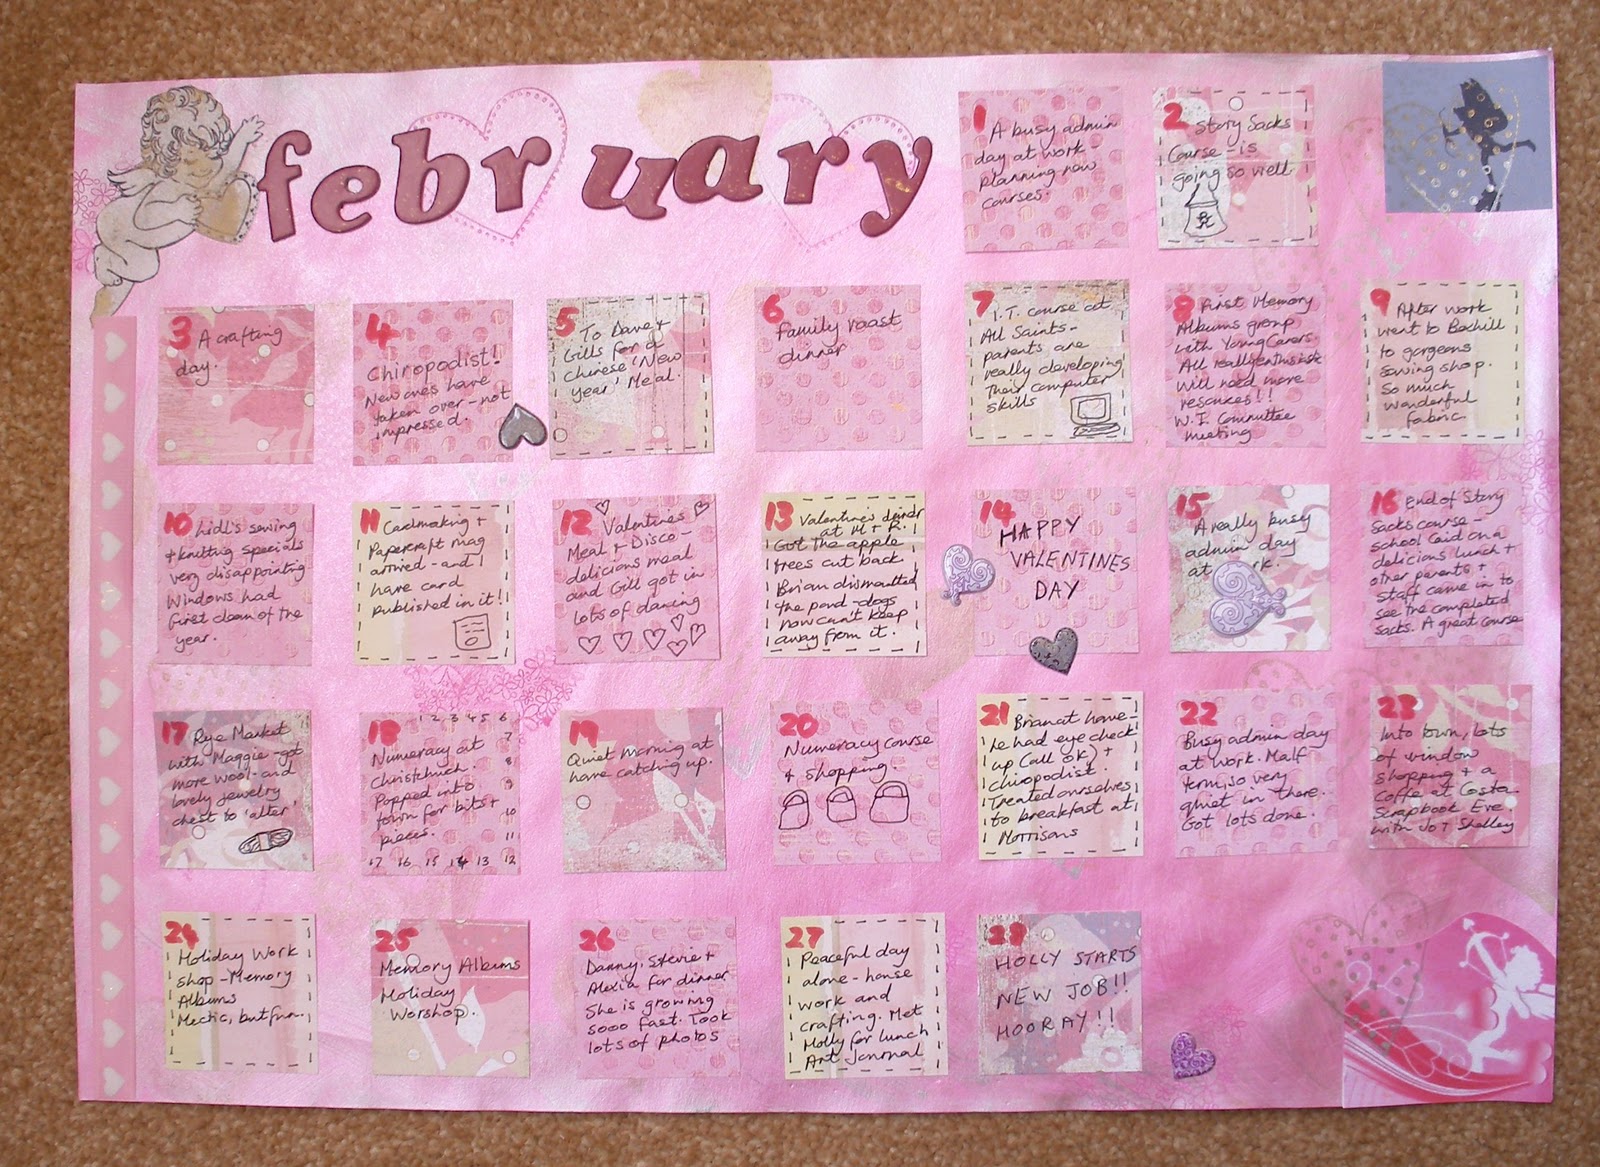 february
1 A busy admin
day at work
planning new
courses.
2 Story Sacks
Course - is
going so well.
3 A crafting
day.
4
Chiropodist!
New ones have
taken over - not
impressed.
5 To Dave +
Gills for a
Chinese 'New
Year' Meal.
6
Family roast
dinner
7 I.T. course at
All Saints -
parents are
really developing
their computer
skills
8 First Memory
Albums group
with Young Carers.
All really enthusiastic
Will need more
resources!!
W.I. Committee
meeting
9 After work
went to Bexhill
to gorgeous
sewing shop.
So much
wonderful
fabric.
10 Lidl's sewing
+ knitting specials
very disappointing
Windows had
first clean of the
year.
11 Cardmaking +
Papercraft mag
arrived - and I
have card
published in it!
12 Valentines
Meal & Disco -
delicious meal
and Gill got in
lots of dancing
13 Valentine's dinner
at H + R.
Got the apple
trees cut back.
Brian dismantled
the pond - dogs
now can't keep
away from it.
14
HAPPY
VALENTINES
DAY
15
A really busy
admin day
at
16 End of Story
Sacks course -
school laid on a
delicious lunch +
other parents +
staff came in to
see the completed
sacks. A great course
17 Rye Market
with Maggie - got
more wool - and
lovely jewelry
chest to 'alter'
18 1 2 3 4 5 6
Numeracy at 7
Christchurch. 8
Popped into 9
town for bits + 10
pieces. 11
17 16 15 14 13 12
19
Quiet morning at
home catching up.
20
Numeracy course
& shopping.
21 Brian at home -
he had eye check
up (all ok) +
chiropodist.
Treated ourselves
to breakfast at
Morrisons
22
Busy admin day
at work. Half
term, so very
quiet in there.
Got lots done.
23
Into town, lots
of window
shopping + a
Coffe at Costa
Scrapbook Eve.
with Jo + Shelley
24
Holiday Work
shop - Memory
Albums
Hectic, but fun.
25
Memory Albums
Holiday
Worshop.
26
Danny, Stevie +
Alexia for dinner.
She is growing
sooo fast. Took
lots of photos
27
Peaceful day
alone - house
work and
crafting. Met
Holly for lunch
Art Journal
28
HOLLY STARTS
NEW JOB!!
HOORAY!!